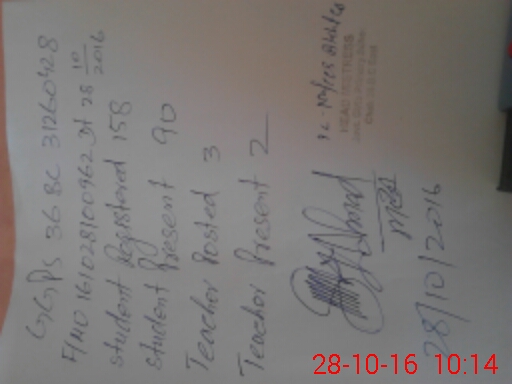 GGPS 36 BC 31260428
F/NO 161028100962 Dt 28 10 2016
Student Registered 158
Student Present 90
Teacher Posted 3
Teacher Present 2
HEAD MISTRESS
28/10/2016
28-10-16 10:14